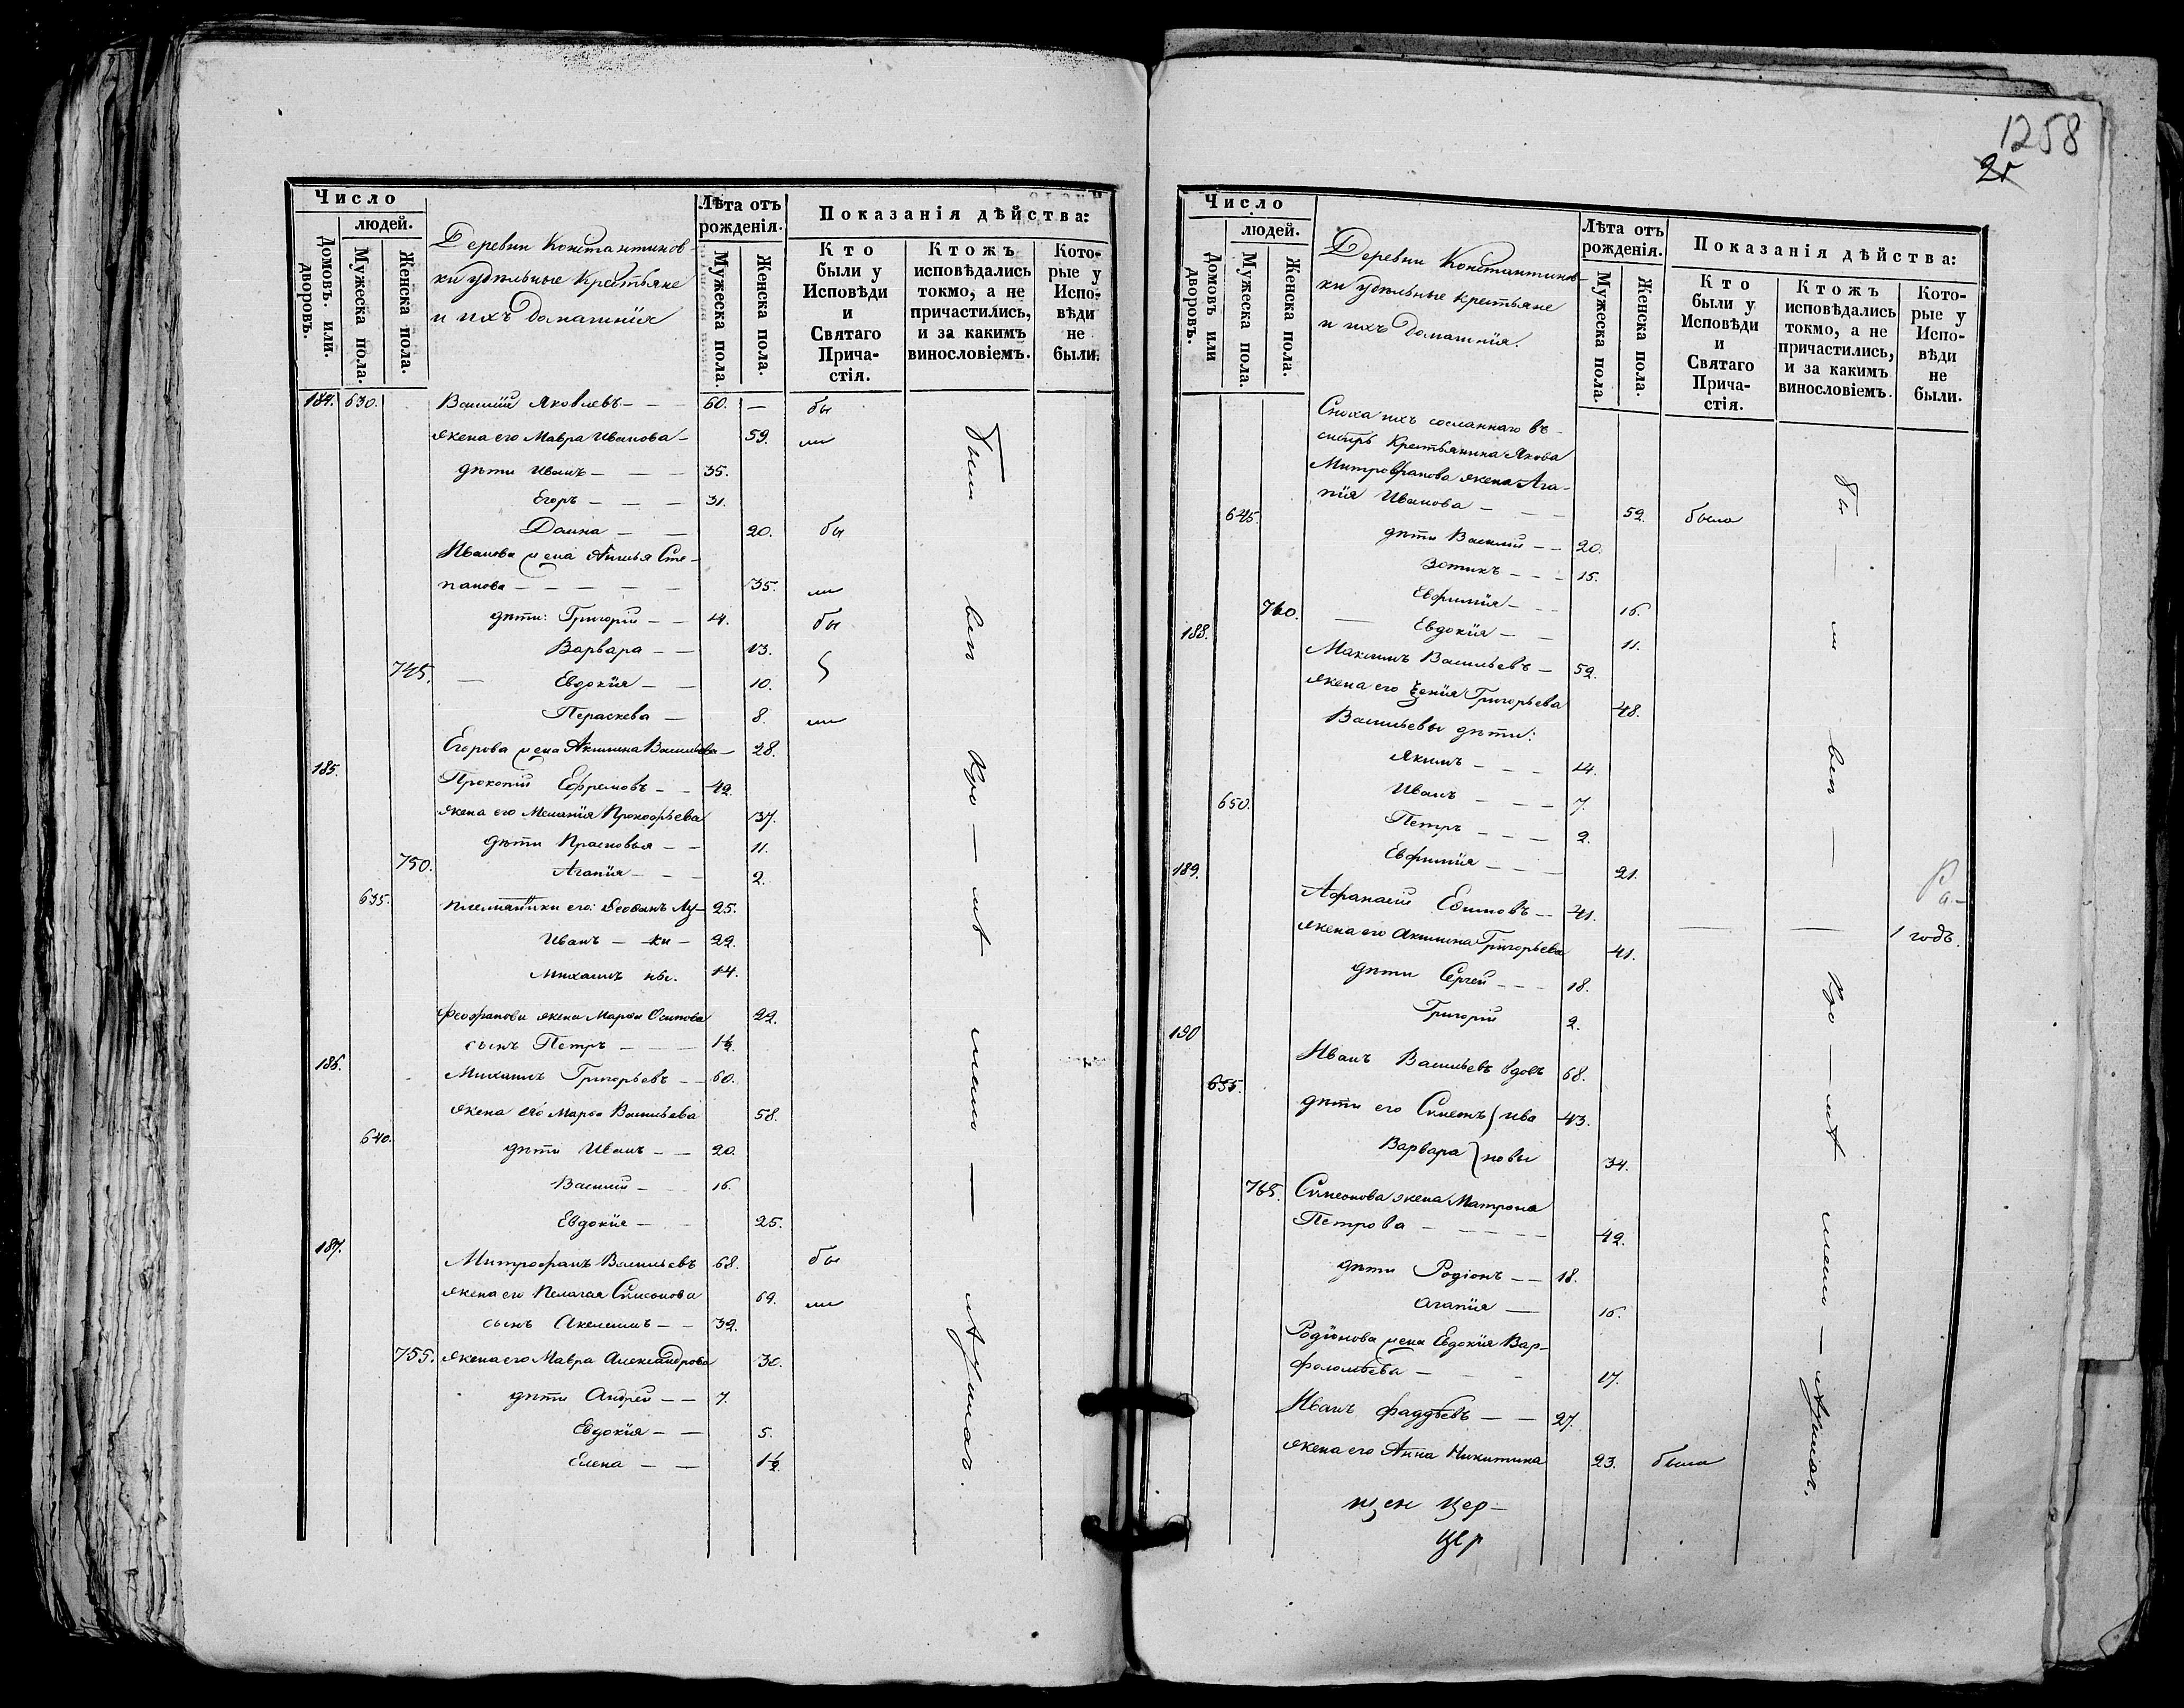 1258
21
Число
людей.
Домовъ. или.
дворовъ.
Мужеска пола.
Женска пола.
Деревни Константинов-
ки удѣльные Крестьяне
и ихъ домашнія
Лѣта отъ
рожденія.
Мужеска пола.
Женска пола.
Показанія дѣйства:
Кто
были у
Исповѣди
и
Святаго
Прича-
стія.
Ктожъ
исповѣдались
токмо, а не
причастились,
и за какимъ
винословіемъ.
Кото-
рые у
Испо-
вѣди
не
были.
184. 630. Василій Яковлевъ — — 60. — бы
жена его Мавра Иванова — 59. ли
дѣти Иванъ — — — 35.
Егоръ — — — 31.
Данна — — 20. бы
Иванова жена Сте-
панова — — — — — 35. ли
дѣти: Григорій — — 14. бы
Варвара — — 13.
745. — Евдокія — — 10.
Параскева — 8. ли
Егорова жена Акилина Васильева — 28.
185. Прокопій Ефремовъ — — 42.
жена его Меланія Прокофьева 37.
дѣти Прасковья — — 11.
750. Агапія — — — 2.
635. племянники его: Феофанъ Лу- 25.
Иванъ — ки — 22.
Михаилъ ны. 14.
Феофанова жена Марѳа Осипова 22.
сынъ Петръ — — — 1½.
186. Михаилъ Григорьевъ — — 60.
жена его Марѳа Васильева 58.
640. дѣти Иванъ — — 20.
Василій — 16.
Евдокія — — 25.
187. Митрофанъ Васильевъ 68. бы
жена его Пелагая Симеонова 69. ли
сынъ — — 32.
755. жена его Мавра Александрова 30.
дѣти Андрей — — 7.
Евдокія — — 5.
Елена — — 1½.
были
вси
Кро — мѣ
мало — лѣтнихъ.
Число
людей.
Домовъ или
дворовъ.
Мужеска пола.
Женска пола.
Деревни Константинов-
ки удѣльные крестьяне
и ихъ домашнія.
Лѣта отъ
рожденія.
Мужеска пола.
Женска пола.
Показанія дѣйства:
Кто
были у
Исповѣди
и
Святаго
Прича-
стія.
Ктожъ
исповѣдались
токмо, а не
причастились,
и за какимъ
винословіемъ.
Кото-
рые у
Испо-
вѣди
не
были.
Сноха ихъ сосланнаго въ
сибирь Крестьянина Якова
Митрофанова жена Ага-
пія Иванова — — — 52. была
645. дѣти Василій — — 20.
Зотикъ — — — 15.
Евфимія — — — 16.
760. — Евдокія — — 11.
188. Максимъ Васильевъ — 52.
жена его Ксенія Григорьева 48.
Васильевы дѣти:
Якимъ — — — 14.
Иванъ — — — 7.
650. Петръ — — — 2.
Евфимія — — — 21.
189. Афанасій Ефимовъ — — 41. Ра-
жена его Акилина Григорьева 41. — — 1 годъ.
дѣти Сергей — — — 18.
Григорій 2.
190 Иванъ Васильевъ вдовъ 68.
655. дѣти его Симеонъ } Ива 43.
Варвара } новы 34.
765. Симеонова жена Матрона
Петрова — — — — — 42.
дѣти Родіонъ — — 18.
Агапія — 16.
Родіонова жена Евдокія Вар-
фоломѣева — — — 17.
Иванъ Фаддѣевъ — — 27.
жена его Анна Никитина 23. была
бы — ли
вси —
Кро — мѣ
мало — лѣтнихъ.
щен цер —
цер